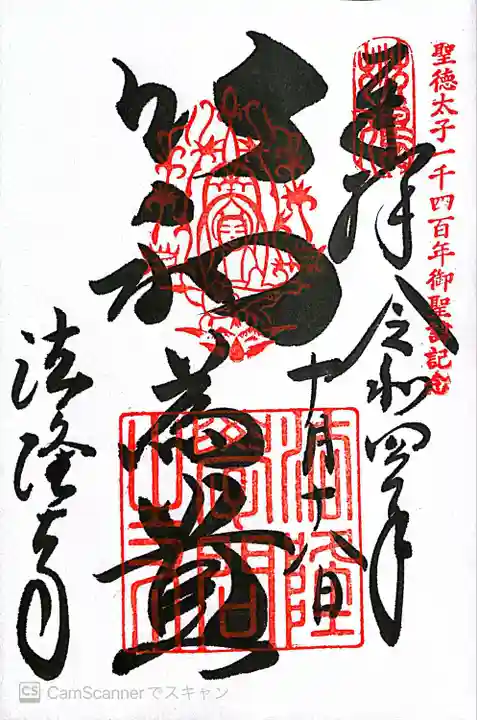 聖徳太子一千四百年御聖諱記念
奉拝 令和四年
十月十八日
以和為貴
法隆寺
CS CamScannerでスキャン